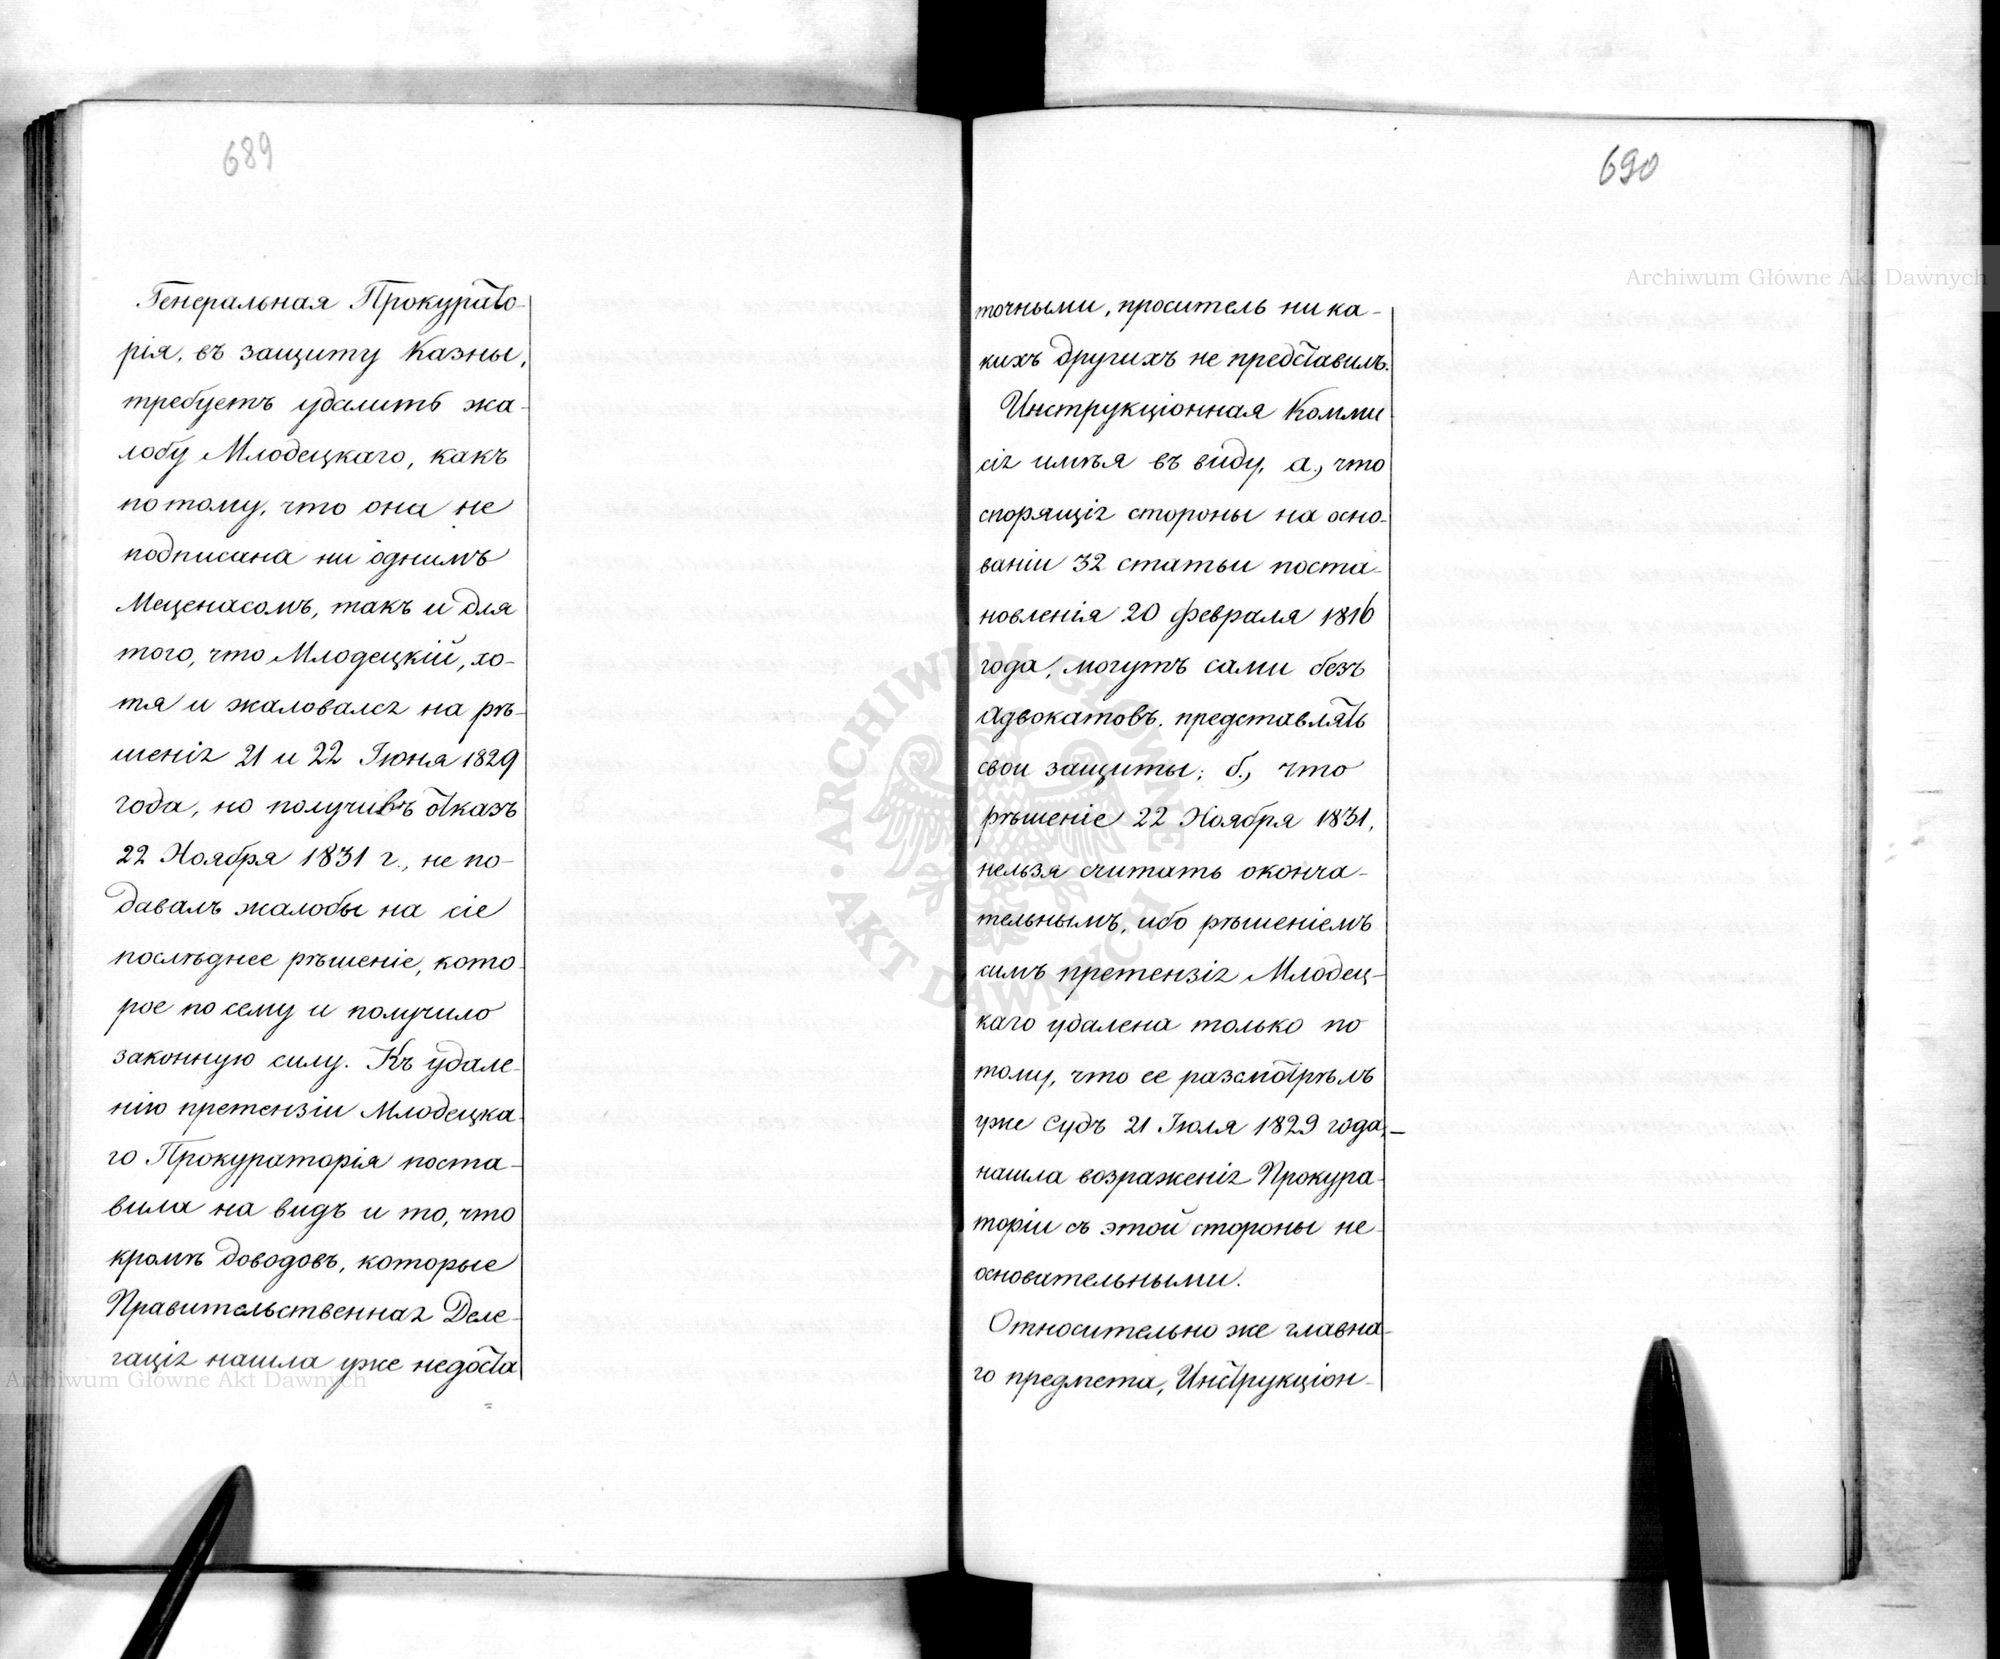 689
Генеральная Прокурато-
рія, въ защиту Казны,
требуетъ удалить жа-
лобу Млодецкаго, какъ
потому, что она не
подписана ни однимъ
Меценасомъ, такъ и для
того, что Млодецкій, хо-
тя и жаловался на рѣ-
шенія 21 и 22 Іюня 1829
года, но получивъ отказъ
22 Ноября 1831 г., не по-
давалъ жалобы на сіе
послѣднее рѣшеніе, кото-
рое посему и получило
законную силу. Къ удале-
нію претензіи Млодецка-
го Прокураторія поста-
вила на видъ и то, что
кромѣ доводовъ, которые
Правительственная Деле-
гація нашла уже недоста
690
точными, проситель ника-
кихъ другихъ не представилъ.
Инструкціонная Комми
сія имѣя въ виду, а., что
спорящія стороны на осно-
ваніи 32 статьи поста-
новленія 20 Февраля 1816
года, могутъ сами безъ
Адвокатовъ, представлять
свои защиты; б., что
рѣшеніе 22 Ноября 1831,
нельзя считать оконча-
тельнымъ, ибо рѣшеніемъ
симъ претензія Млодец-
каго удалена только по
тому, что ее разсмотрѣлъ
уже Судъ 21 Іюля 1829 года,—
нашла возраженія Прокура-
торіи съ этой стороны не-
основательными.
Относительно же главна-
го предмета, Инструкціон-
Archiwum Główne Akt Dawnych
Archiwum Główne Akt Dawnych
ARCHIWUM GŁÓWNE AKT DAWNYCH